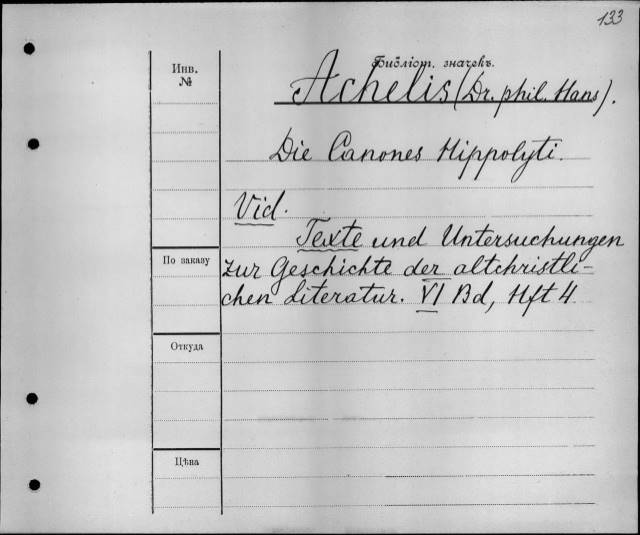 133
Инв.
№
Библіот. значекъ.
Achelis (Dr. phil. Hans).
Die Canones Hippolyti.
Vid.
Texte und Untersuchungen
По заказу
zur Geschichte der altchristli-
chen Literatur. VI Bd, Hft 4
Откуда
Цѣна